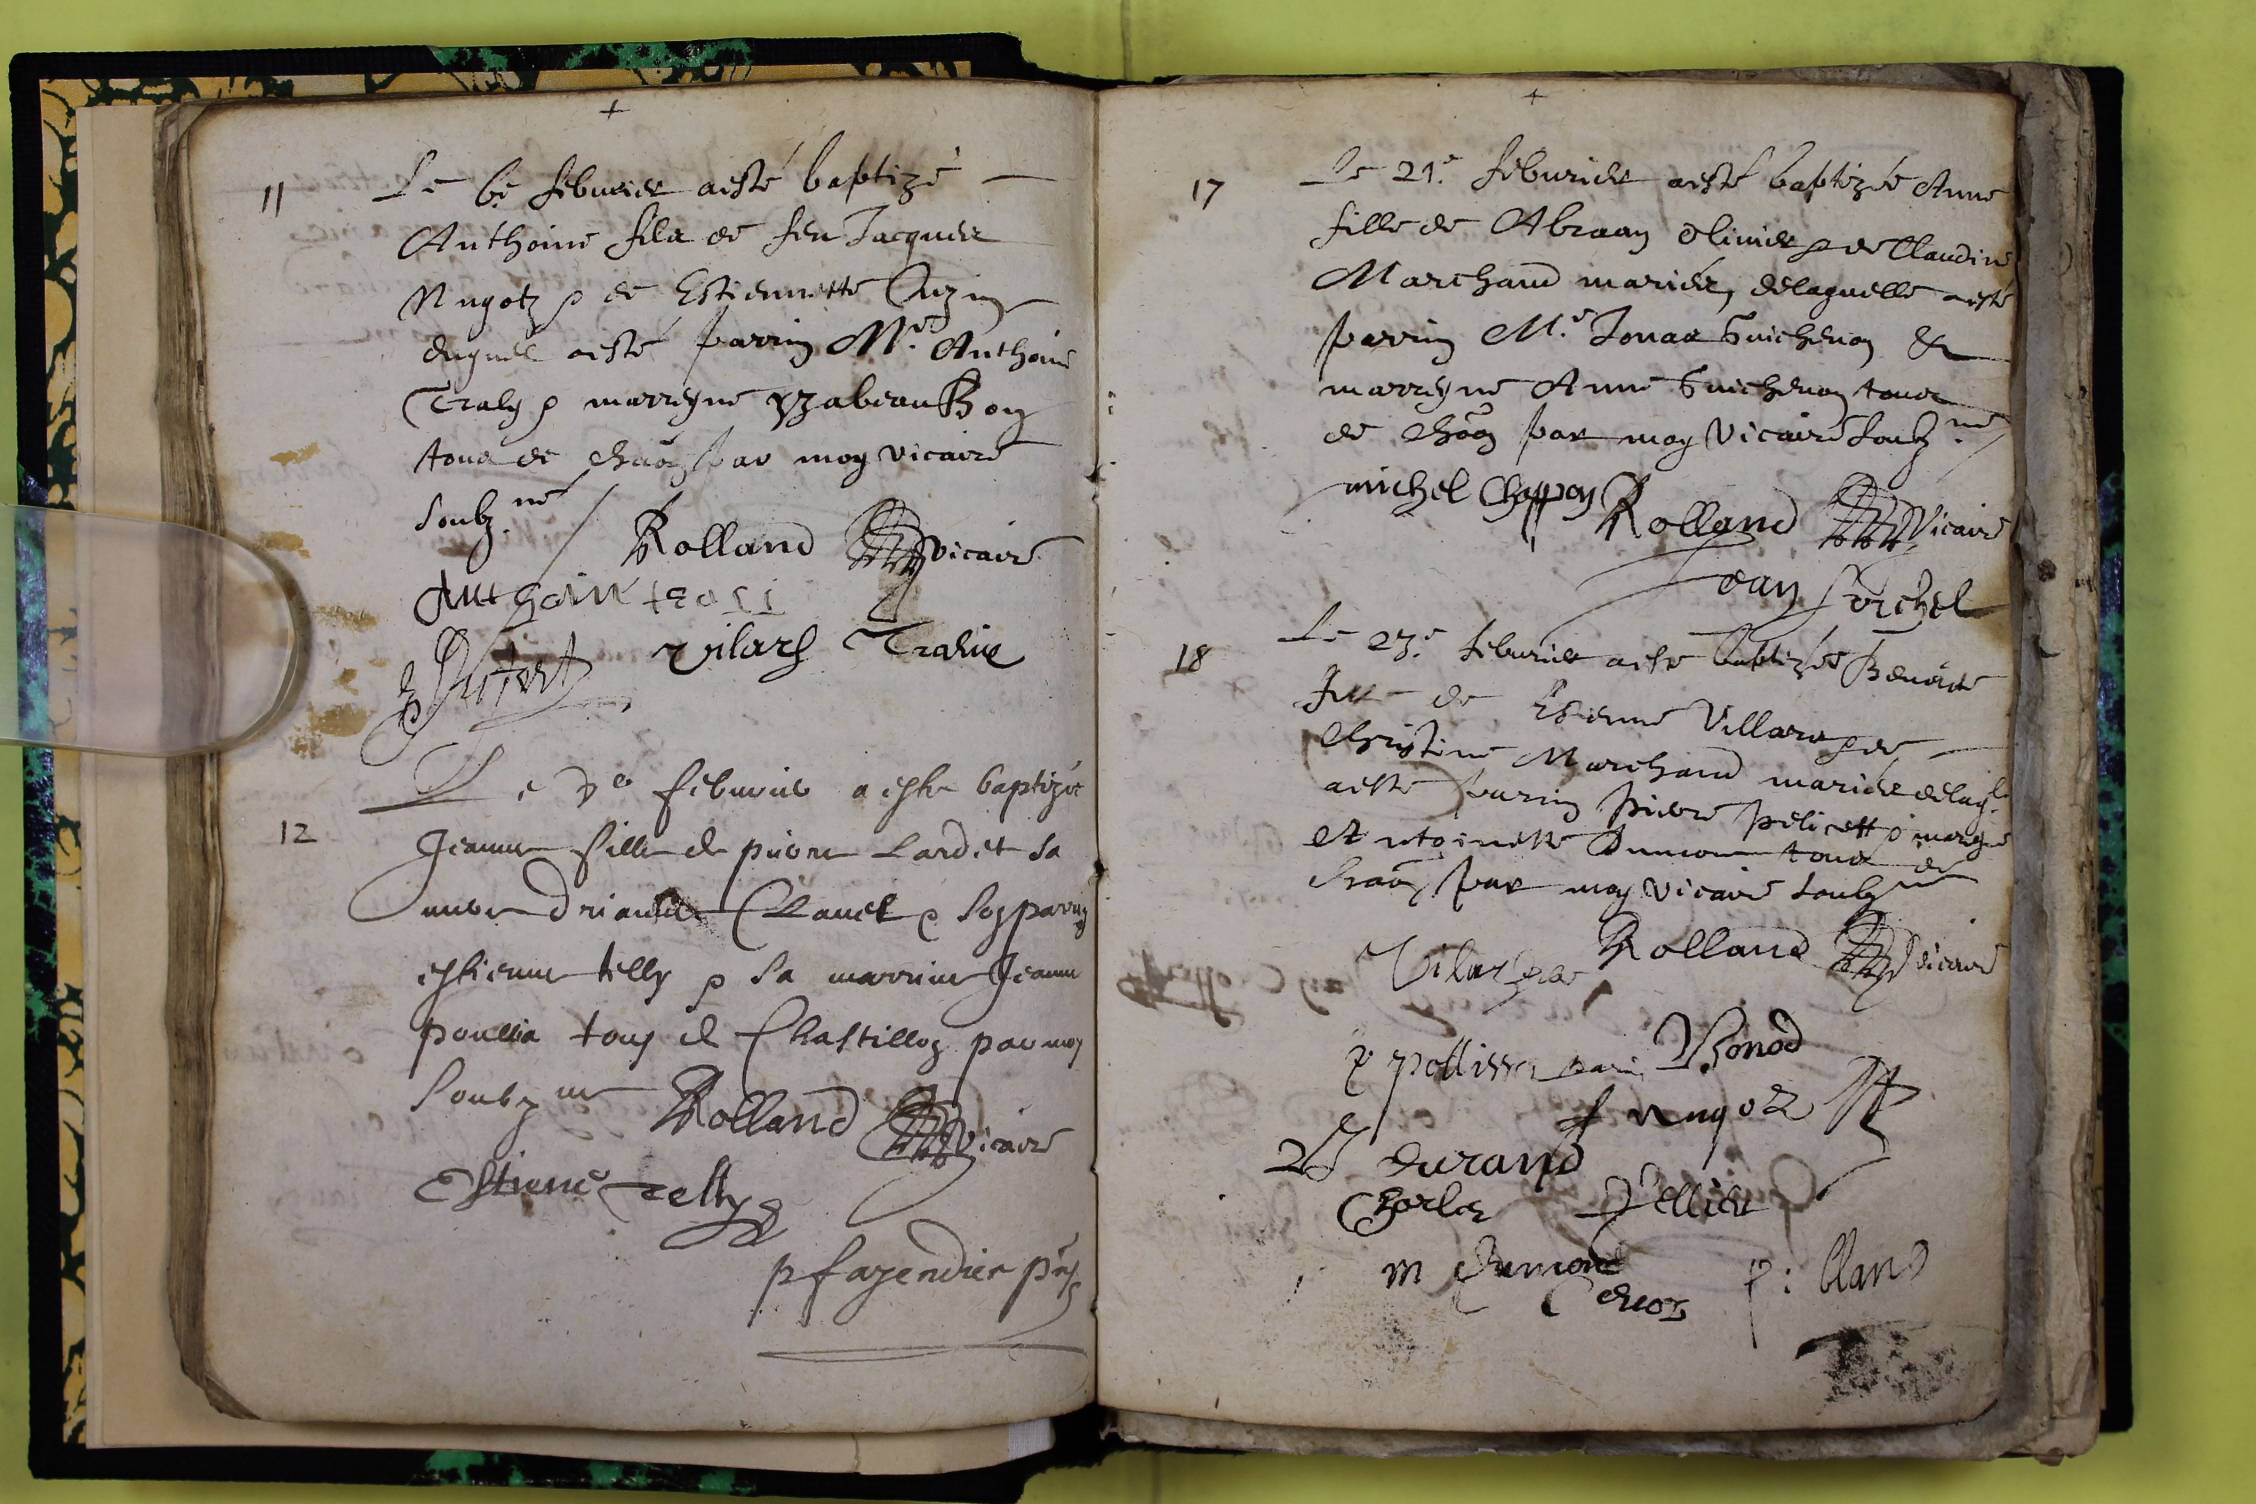 +
11 Le 6e feburier a esté baptizé
Anthoine filz de feu Jacques
Nugotz & de Estiennette
duquel a esté parrin Mre. Anthoine
Traly & marreyne yzabeau Boy
tous de chaon par moy vicaire
soubz.né
Rolland vicaire
Anthoine
Vilars Tralie
Le Ve feburier a este baptizée
12 Jeanne fille de pierre Lardet sa
mere Clauel & son parrin
estienne telly & sa marrine Jeanne
tous de Chastillon par moy
soubz ne Rolland vicaire
Estiene Telly
p fayendier
+
17 Le 21.e feburier a esté baptizée Anne
fille de Abraan Olinier & de Claudine
Marchand mariés, delaquelle a esté
parrin Mr.e Jonas Guichenon &
marreyne Anne Guichenon tous
de chaon par moy vicaire soubz.né
michel Chappon Rolland vicaire
Jean
18 Le 23.e feburier a esté baptizée Benoite
fille de Estienne Villars & de
Christine Marchand mariés delaq.le
a esté parrin pierre pelicett & marrayne
Antoinette Dumon tous de
chaon, par moy vicaire soubz né
Rolland vicaire
Vilars
p pellisset parin Bonod
Nugoz
durand
Charles Tellier
m dumont p: blanc